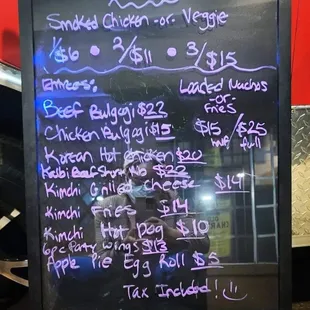 Smoked Chicken -or- Veggie
1/$6 • 2/$11 • 3/$15
Entrees:
Loaded Nachos
-or-
Fries
Beef Bulgogi $22
Chicken Bulgogi $15
$15 / $25
half / full
Korean Hot Chicken $20
Kalbi Beef Short Rib $22
Kimchi Grilled Cheese $14
Kimchi Fries $14
Kimchi Hot Dog $10
6pc Party Wings $13
Apple Pie Egg Roll $5
Tax Included!